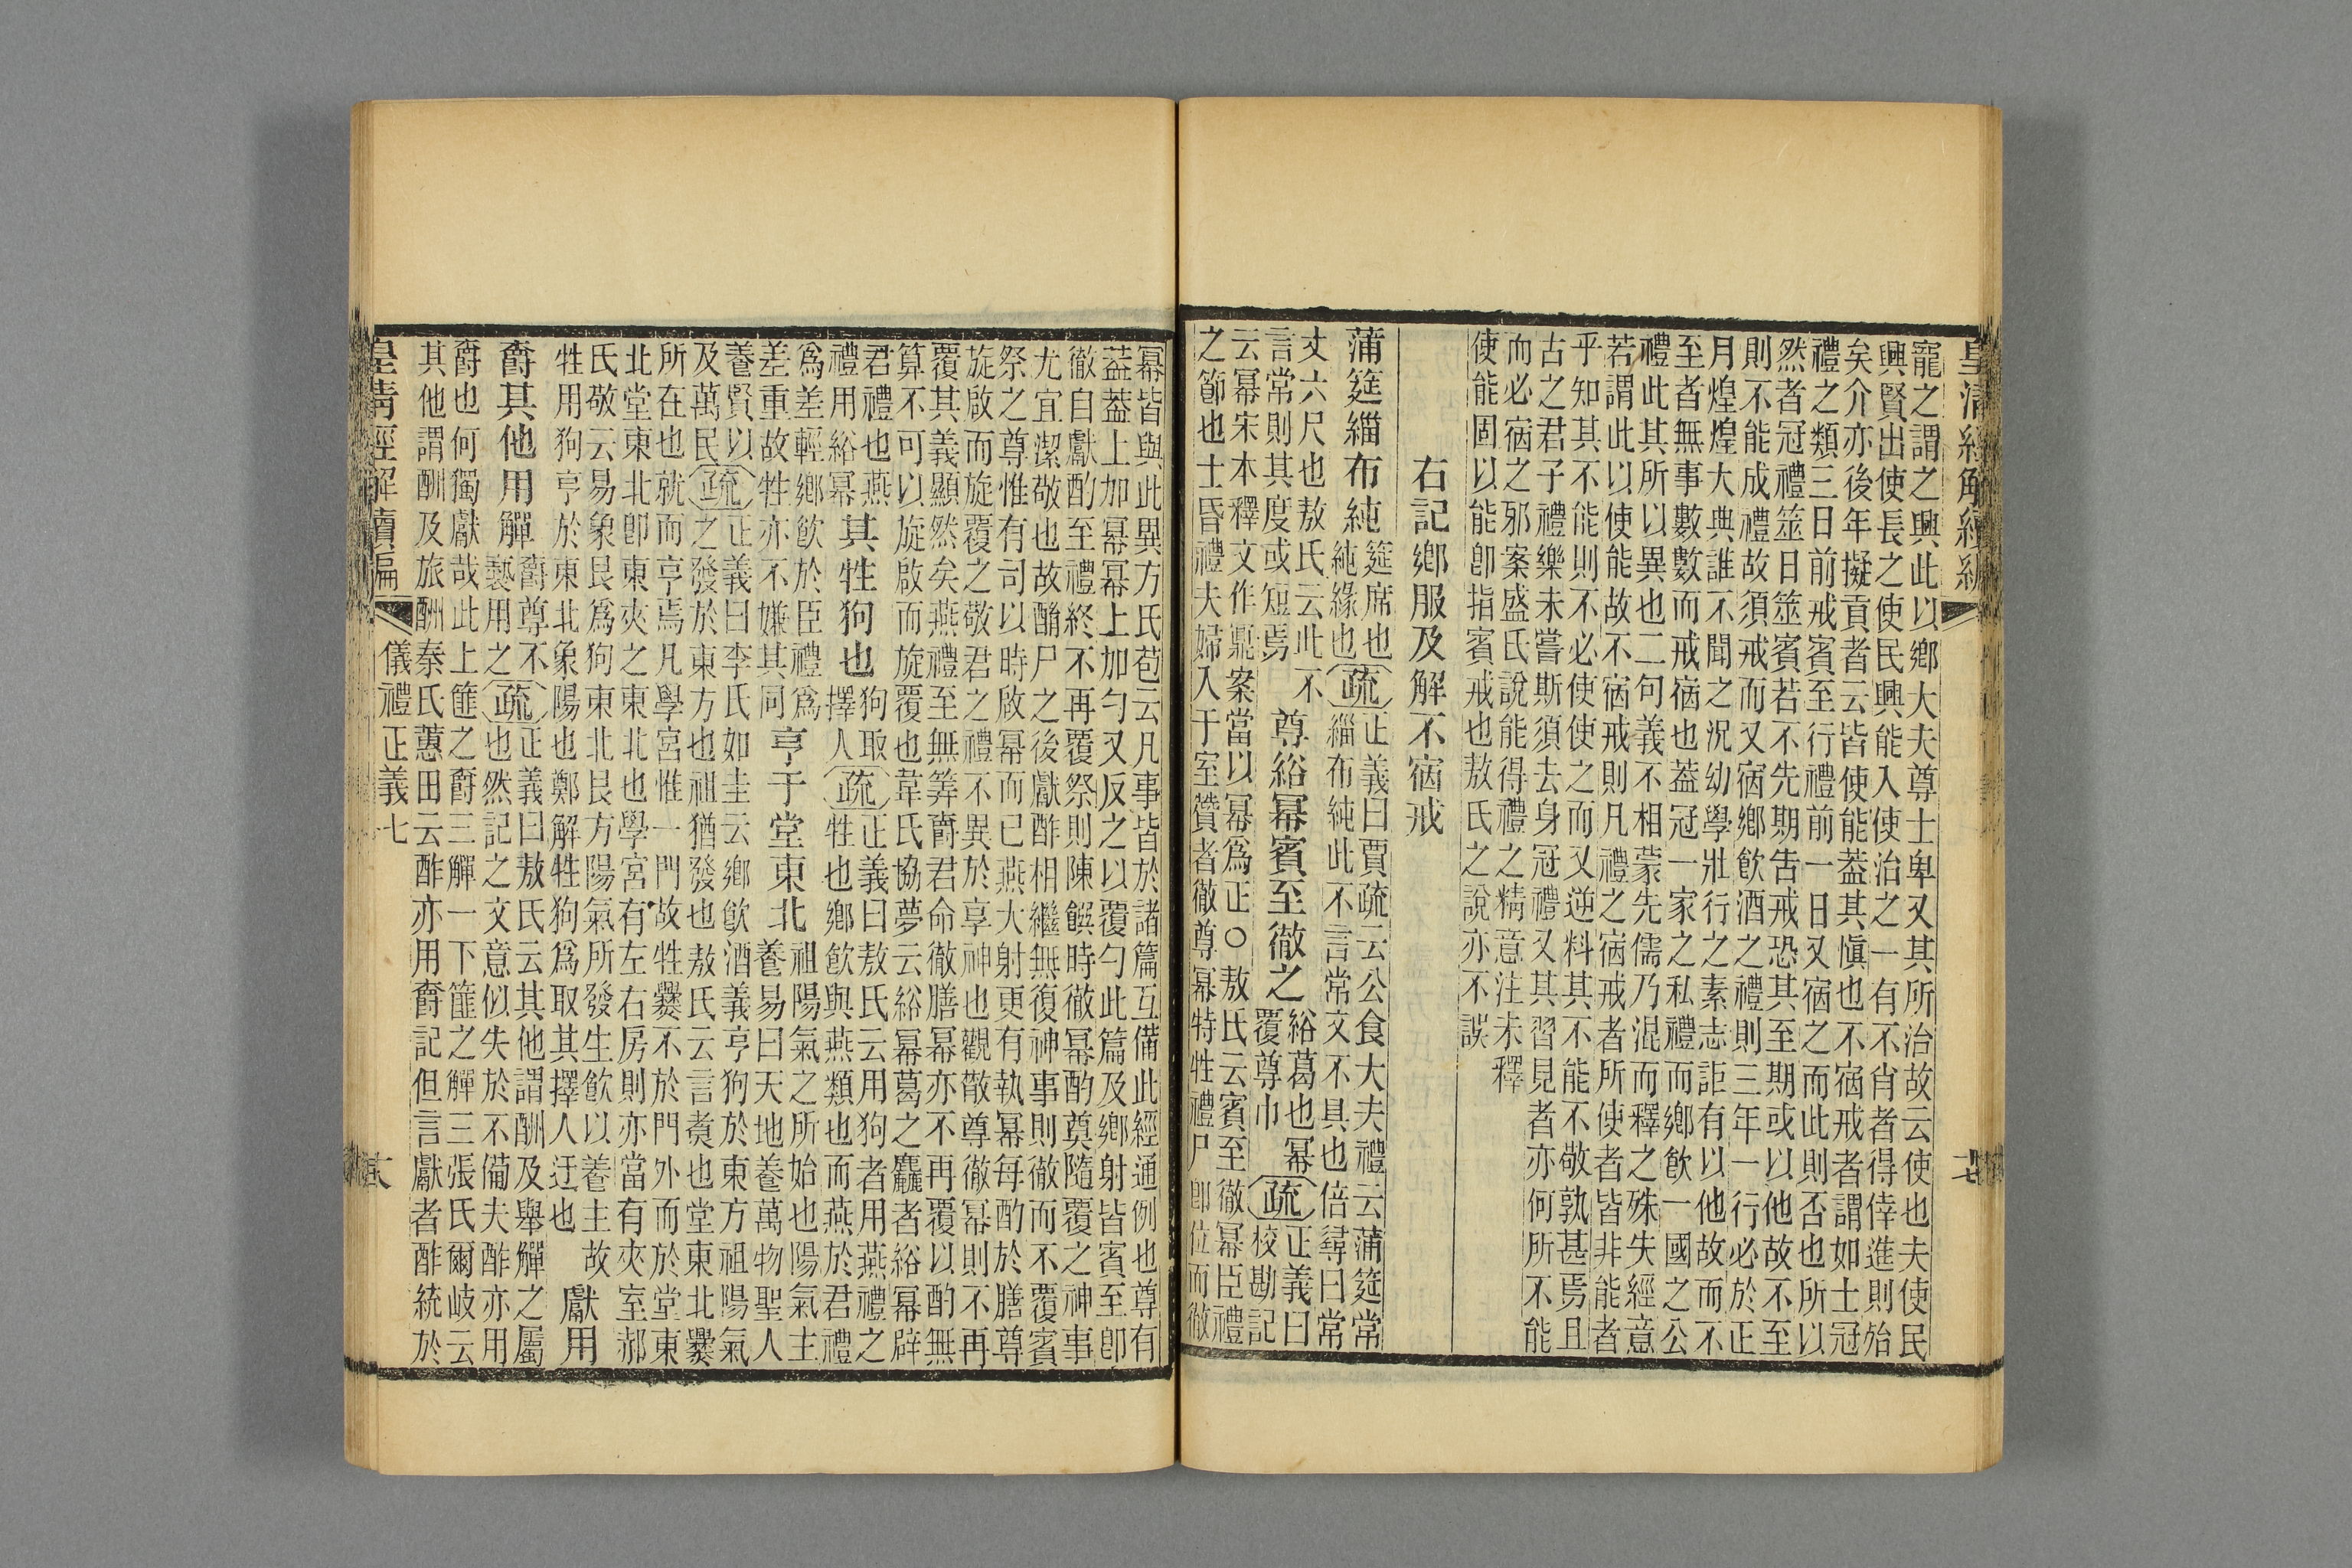 皇清經解續編
寵之謂之興此以鄉大夫尊士卑又其所治故云使也夫使民
興賢出使長之使民興能入使治之一有不肖者得倖進則殆
矣介亦後年擬貢者云皆使能葢其愼也不宿戒者謂如士冠
禮之類三日前戒賓至行禮前一日又宿之而此則否也所以
然者冠禮筮日筮賓若不先期吿戒恐其至期或以他故不至
則不能成禮故須戒而又宿鄉飮酒之禮則三年一行必於正
月煌煌大典誰不聞之況幼學壯行之素志詎有以他故而不
至者無事數數而戒宿也葢冠一家之私禮而鄉飮一國之公
禮此其所以異也二句義不相蒙先儒乃混而釋之殊失經意
若謂此以使能故不宿戒則凡禮之宿戒者所使者皆非能者
乎知其不能則不必使使之而又逆料其不能不敬孰甚焉且
古之君子禮樂未嘗斯須去身冠禮又其習見者亦何所不能
而必宿之邪案盛氏說能得禮之精意注未釋
使能固以能卽指賓戒也敖氏之說亦不誤
右記鄉服及解不宿戒
蒲筵緇布純
筵席也
純緣也
疏
正義曰賈疏云公食大夫禮云蒲筵常
緇布純此不言常文不具也倍尋曰常
丈六尺也敖氏云此不
言常則其度或短焉
尊綌冪賓至徹之
綌葛也冪
覆尊巾
疏
正義曰
校勘記
云冪宋本釋文作鼏案當以冪爲正○敖氏云賓至徹冪臣禮
之節也士昏禮夫婦入于室贊者徹尊冪特牲禮尸卽位而徹
冪皆與此異方氏苞云凡事皆於諸篇互備此經通例也尊有
葢葢上加冪冪上加勺又反之以覆勺此篇及鄉射皆賓至卽
徹自獻酌至禮終不再覆祭則陳饌時徹冪酌奠隨覆之神事
尤宜潔敬也故酳尸之後獻酢相繼無復神事則徹而不覆賓
祭之尊惟有司以時啟冪而已燕大射更有執冪每酌於膳尊
旋啟而旋覆之敬君之禮不異於享神也觀散尊徹冪則不再
覆其義顯然矣燕禮至無筭爵君命徹膳冪亦不再覆以酌無
算不可以旋啟而旋覆也韋氏協夢云綌冪葛之麤者綌冪辟
君禮也燕
禮用綌冪
其牲狗也
狗取
擇人
疏
正義曰敖氏云用狗者用燕禮之
牲也鄉飮與燕類也而燕於君禮
爲差輕鄉飮於臣禮爲
差重故牲亦不嫌其同
亨于堂東北
祖陽氣之所始也陽氣主
養易曰天地養萬物聖人
養賢以
及萬民
疏
正義曰李氏如圭云鄉飮酒義亨狗於東方祖陽氣
之發於東方也祖猶發也敖氏云言爨也堂東北爨
所在也就而亨焉凡學宮惟一門故牲爨不於門外而於堂東
北堂東北卽東夾之東北也學宮有左右房則亦當有夾室郝
氏敬云易象艮爲狗東北艮方陽氣所發生飮以養主故
牲用狗亨於東北象陽也鄭解牲狗爲取其擇人迂也
獻用
爵其他用觶
爵尊不
褻用之
疏
正義曰敖氏云其他謂酬及舉觶之屬
也然記之文意似失於不備夫酢亦用
爵也何獨獻哉此上篚之爵三觶一下篚之觶三張氏爾岐云
其他謂酬及旅酬秦氏蕙田云酢亦用爵記但言獻者酢統於
皇清經解續編
儀禮正義七